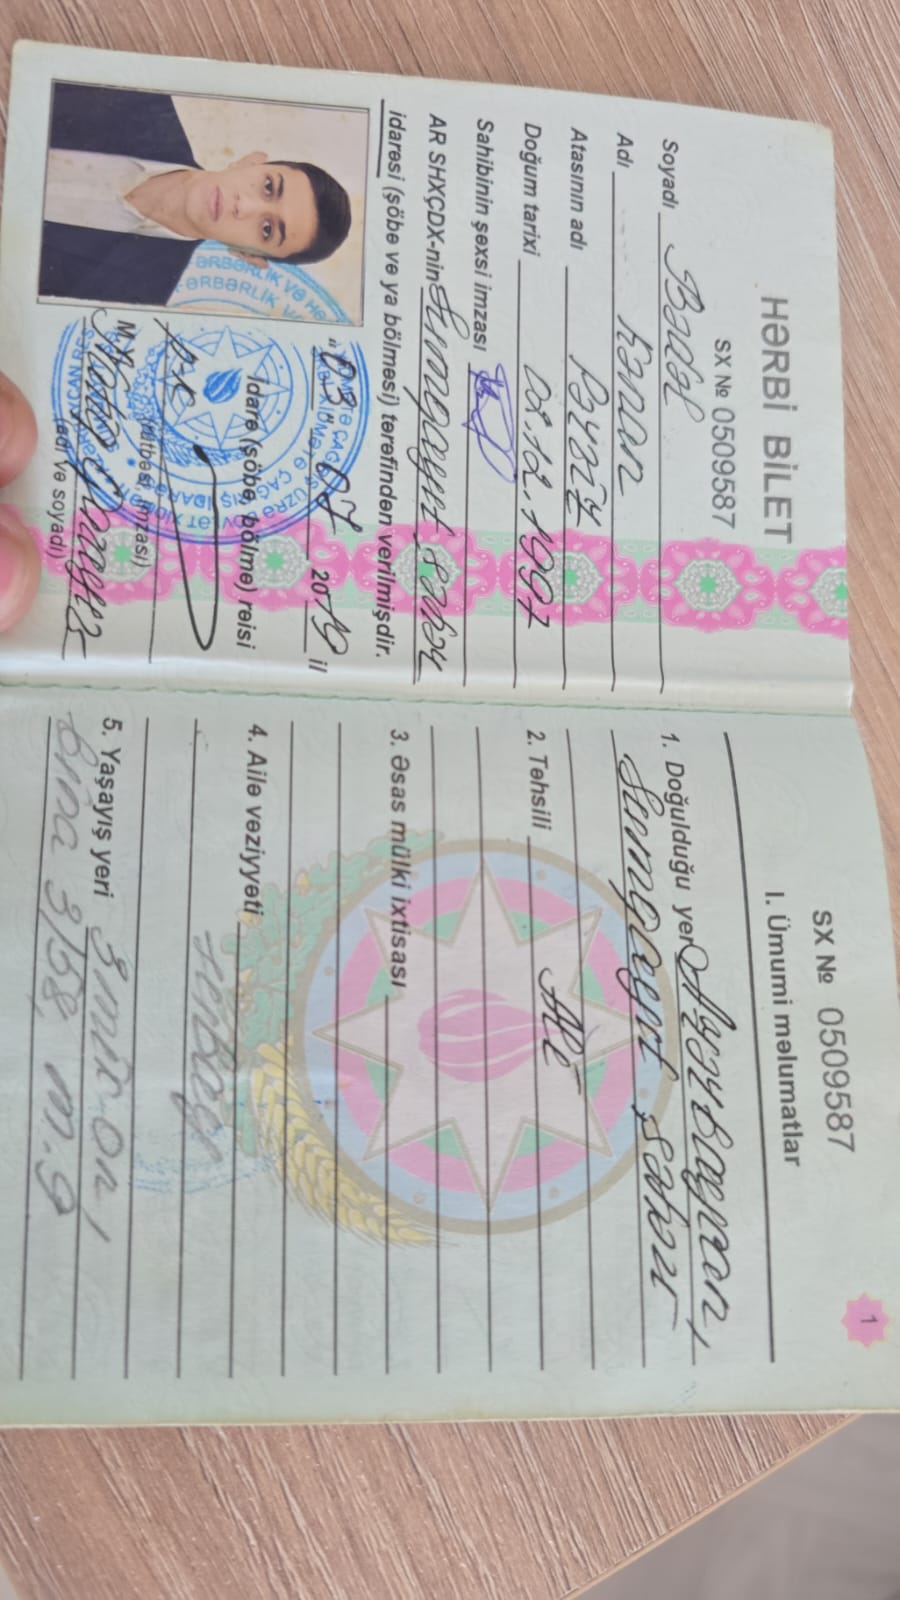 HƏRBİ BİLET
SX № 0509587
Soyadı Bədəl
Adı Kənan
Atasının adı
Doğum tarixi 08.12.1997
Sahibinin şəxsi imzası
AR SHXÇDX-nin Sumqayıt şəhər
idarəsi (şöbə və ya bölməsi) tərəfindən verilmişdir.
"08" 07 2019 il
İdarə (şöbə, bölmə) rəisi
M.Y.
(rütbəsi, imzası)
(adı və soyadı)
SX № 0509587
1
I. Ümumi məlumatlar
1. Doğulduğu yer Azərbaycan,
Sumqayıt şəhəri
2. Təhsili Ali
3. Əsas mülki ixtisası
4. Ailə vəziyyəti
subay
5. Yaşayış yeri
bina 3/58, m.9